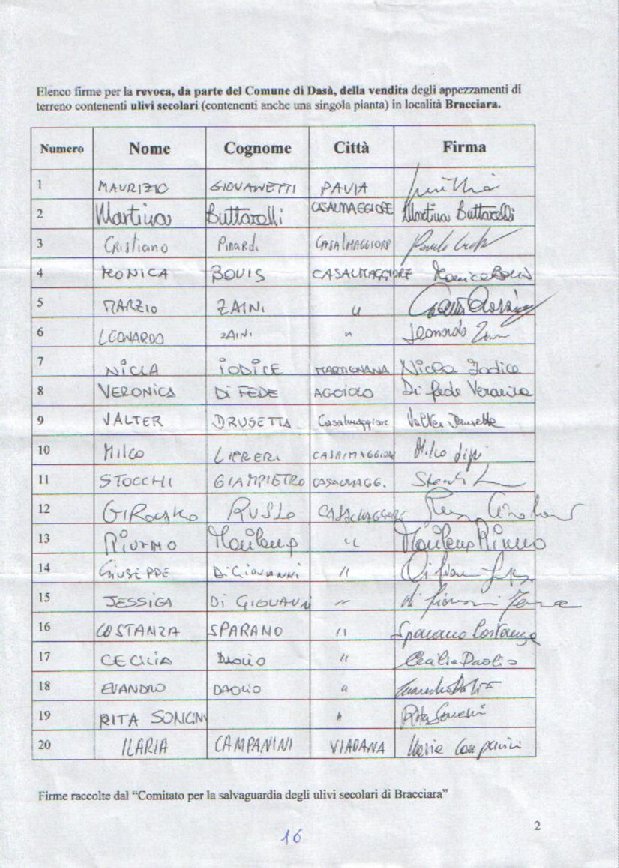 Elenco firme per la revoca, da parte del Comune di Dasà, della vendita degli appezzamenti di
terreno contenenti ulivi secolari (contenenti anche una singola pianta) in località Bracciara.
Numero Nome Cognome Città Firma
1 MAURIZIO GIOVANETTI PAVIA
2 Martina Buttarelli CASALMAGGIORE Martina Buttarelli
3 Cristiano Pinardi CASALMAGGIORE
4 MONICA BOVIS CASALMAGGIORE Monica Bovis
5 MARZIO ZAINI "
6 LEONARDO ZAINI " Leonardo
7 NICLA IODICE MARTIGNANA Nicla Iodice
8 VERONICA Di FEDE Di fede Veronica
9 VALTER DRUSETTA Casalmaggiore Valter Drusetta
10 MILCO LIPRERI CASALMAGGIORE Milco
11 STOCCHI GIAMPIETRO CASALMAGG.
12 GIROLAMO RUSSO CASALMAGGIORE
13 "
14 GIUSEPPE Di GIOVANNI "
15 JESSICA Di GIOVANNI "
16 COSTANZA SPARANO " Sparano Costanza
17 CECILIA DAOLIO " Cecilia Daolio
18 EVANDRO DAOLIO "
19 RITA SONCINI "
20 ILARIA CAMPANINI VIADANA Ilaria Campanini
Firme raccolte dal "Comitato per la salvaguardia degli ulivi secolari di Bracciara"
2
16